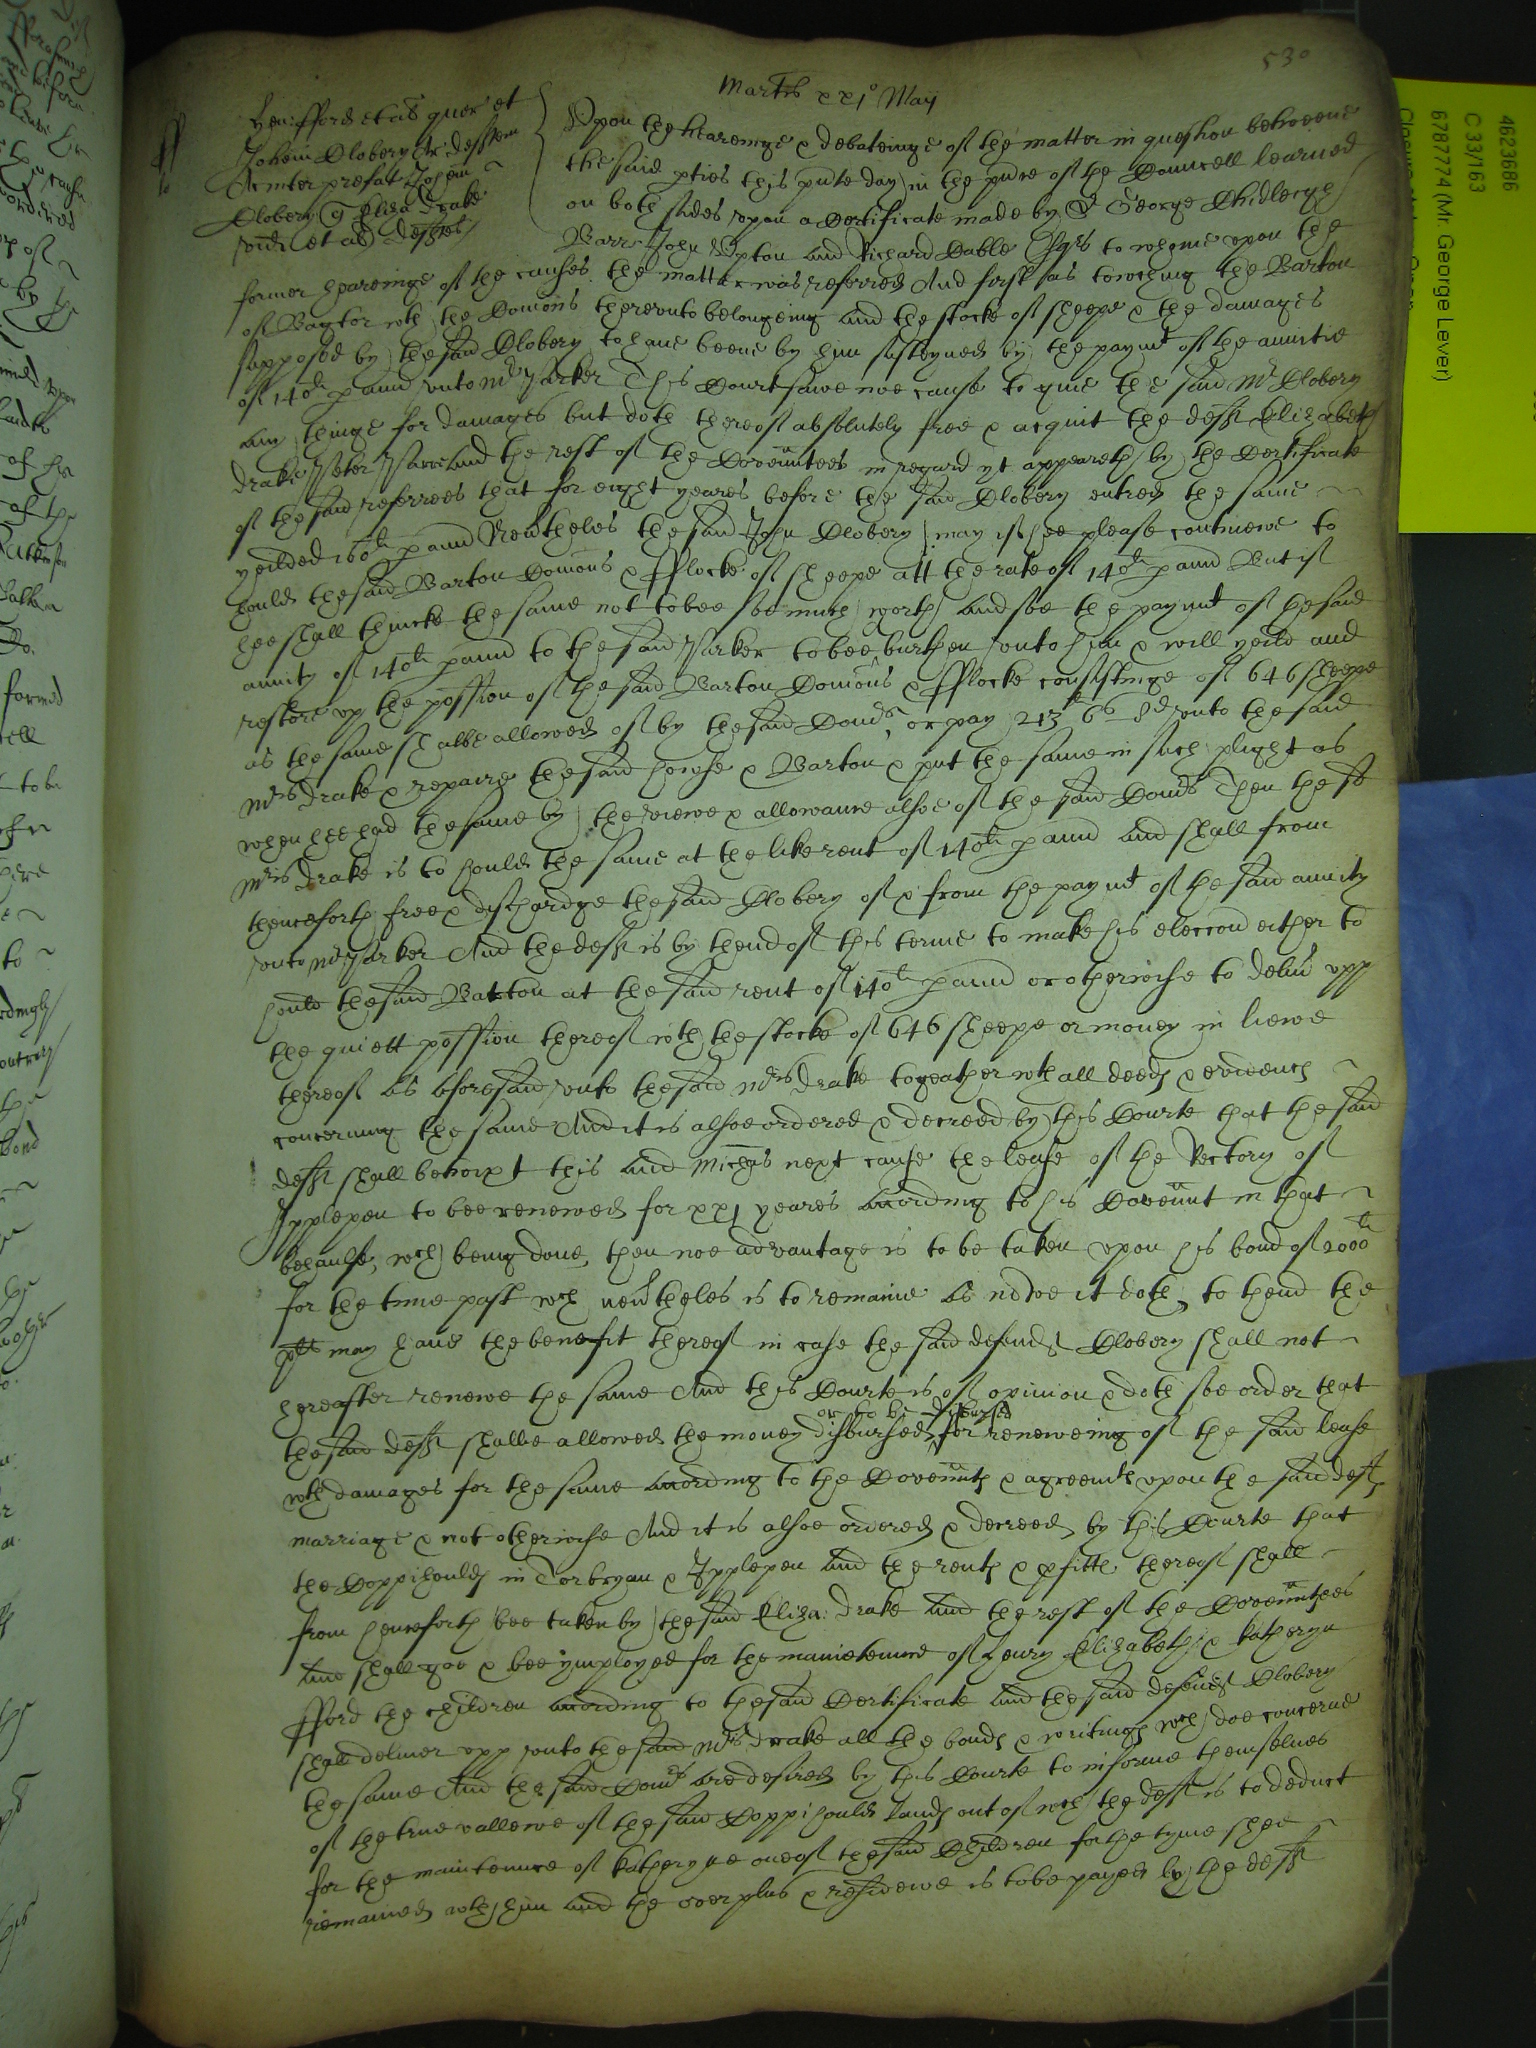 530
Martis xxj° Maij
Hen: fford et al quer et
Johem Clobery Ar defftem
Ac inter prefat Johem
Clobery q Eliza Drake
vid et al defftes
Vpon the heareinge & debateinge of the matter in question betweene
the said pties this pnte day in the pnce of the Councell learned
on both sides vpon a Certificate made by Sr George Chidlegh
Barrt John Vpton and Richard Cable Esqrs to whome vpon the
former heareinge of the causes the matter was referred And first as towching the Barton
of Bagtor wth the Comons therevnto belongeing and the stocke of sheepe & the damages
supposed by the said Clobery to haue beene by him susteyned by the paymt of the annitie
of 140li p annu vnto Mr Parker This Court sawe noe cause to giue the said Mr Clobery
any thinge for damages but doth thereof absolutely free & acquit the defft Elizabeth
Drake Peter and the rest of the Covenntees in regard yt appeareth by the Certificate
of the said referrees that for eight yeares before the said Clobery entred the same
yeilded 160li p annu Neutheles the said John Clobery may if hee please contineue to
hould the said Barton Comons & fflocke of sheepe att the rate of 140li p annu But if
hee shall thincke the same not to bee soe much worth and soe the paymt of the said
annity of 140li p annu to the said Parker to bee burthen vnto him & will yeild and
restore vp the possion of the said Barton Comons & fflocke consistinge of 646 sheepe
as the same shalbe allowed of by the said Comrs or pay 213li 6s 8d vnto the said
Mris Drake & repaire the said howse & Barton & put the same in such plight as
when hee had the same by the viewe & allowance alsoe of the said Comrs Then the sd
Mris Drake is to hould the same at the like rent of 140li p annu and shall from
thenceforth free & dischardge the said Clobery of & from the paymt of the said annity
vnto Mr Parker And the defft is by thend of this terme to make his eleccon either to
hould the said Barton at the said rent of 140li p annu or otherwise to deliu vpp
the quiett possion thereof wth the stocke of 646 sheepe or money in liewe
thereof as aforesaid vnto the said Mris Drake togeather wth all deeds & evidencs
concerning the same And it is alsoe ordered & decreed by this Courte that the said
defft shall betwixt this and Michas next cause the lease of the Rectory of
Ipplepen to bee renewed for xxj yeares according to his Covennt in that
behaulfe, wch being done, then noe advantage is to be taken vpon his bond of 2000li
for the time past wch neutheles is to remaine as nowe it doth, to thend the
plts may haue the benefit thereof in case the said defendt Clobery shall not
hereafter renewe the same And this Courte is of opinion & doth soe order that
the said defft shalbe allowed the money disbursed or to be disbursed for reneweing of the said lease
wth damages for the same according to the Covennts & agreemts vpon the said defts
marriage & not otherwise And it is alsoe ordered & decreed by this Courte that
the Coppihoulds in Torbryan & Ipplepen and the rents & pfitts thereof shall
from henceforth bee taken by the said Eliza: Drake and the rest of the Covenntees
and shall goe & bee ymployed for the maintenance of Henry Elizabeth & Katheryn
fford the children according to the said Certificate and the said defendt Clobery
shall deliuer vpp vnto the said Mris Drake all the bonds & writings wch doe concerne
the same And the said Comrs are desired by this Courte to informe themselues
of the true vallewe of the said Coppihould lands out of wch the defft is to deduct
for the maintennce of Katheryne one of the said Children for the tyme shee
remained with him and the overplus & residewe is to be payed by the defft
4623686
C 33/163
67877774 (Mr. George Lever)